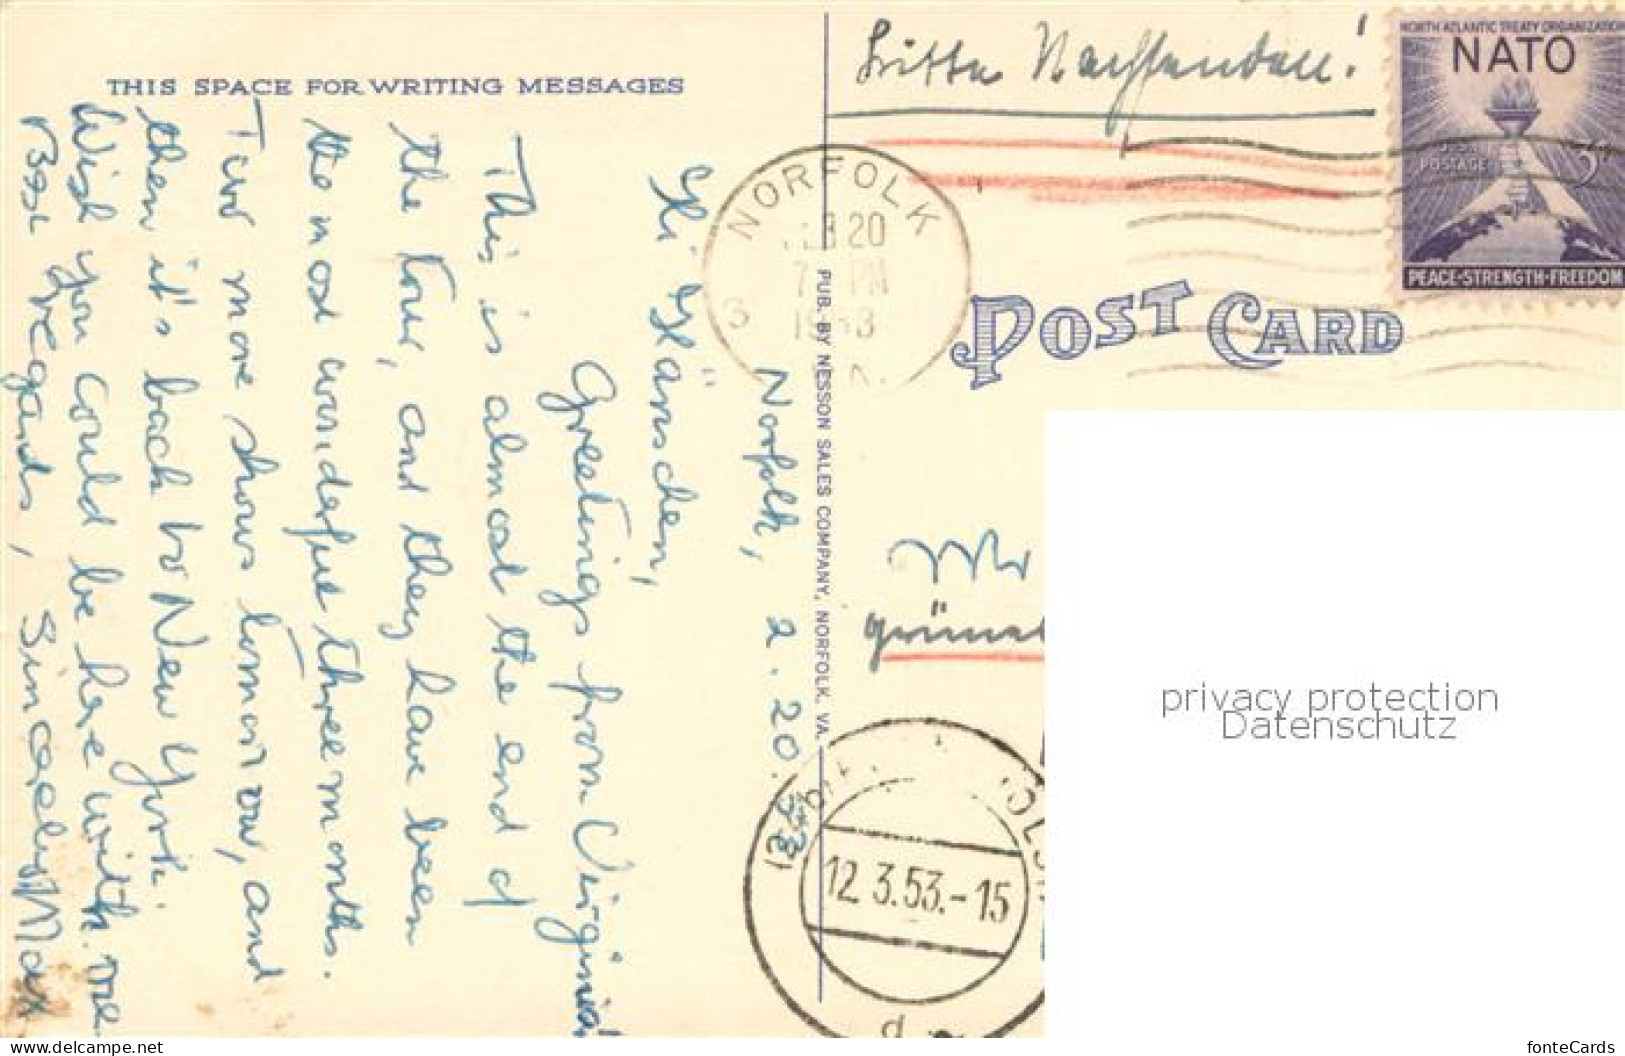 THIS SPACE FOR WRITING MESSAGES
Norfolk, 2. 20. 1953
Hi Hänschen,
Greetings from Virginia!
This is almost the end of
the tour, and they have been
the most wonderful three months.
Two more shows tomorrow, and
then it's back to New York.
Wish you could be here with me
Best regards, Sincerely, Max
PUB. BY NESSON SALES COMPANY, NORFOLK, VA.
Bitte Nachsenden!
NORTH ATLANTIC TREATY ORGANIZATION
NATO
U.S. POSTAGE 3¢
PEACE-STRENGTH-FREEDOM
NORFOLK
FEB 20
7 PM
1953
3
POST CARD
Mr
12.3.53.-15
privacy protection
Datenschutz
www.delcampe.net
fonteCards